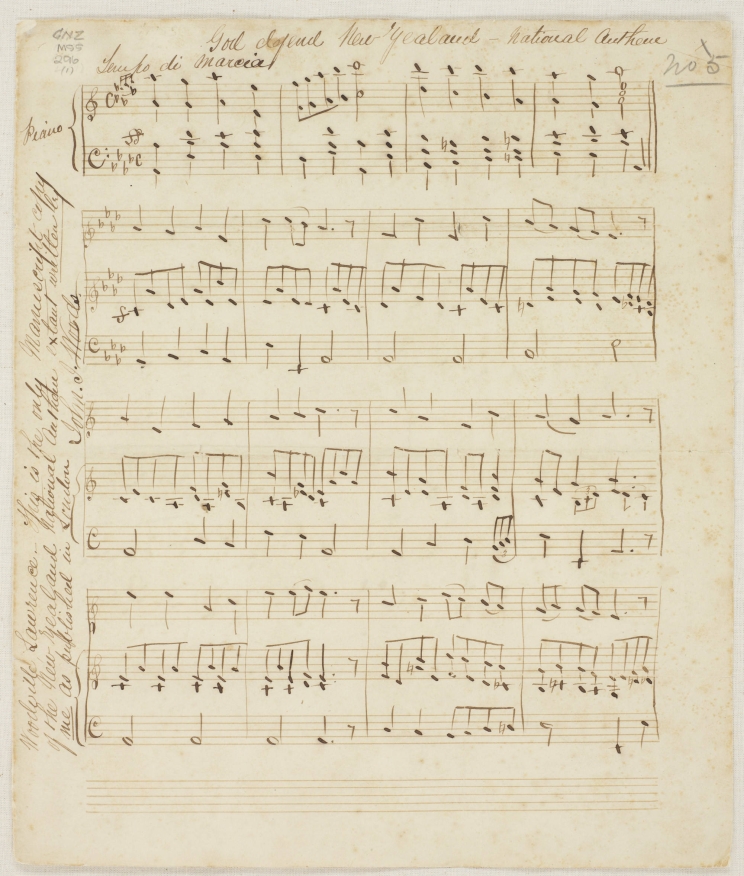 GNZ
MSS
God defend New Zealand – National Anthem
Tempo di Marcia
No 5
Piano
Woodville Lawrence – This is the only Manuscript copy
of the New Zealand National Anthem extant written by
me as published in London John J. Woods.